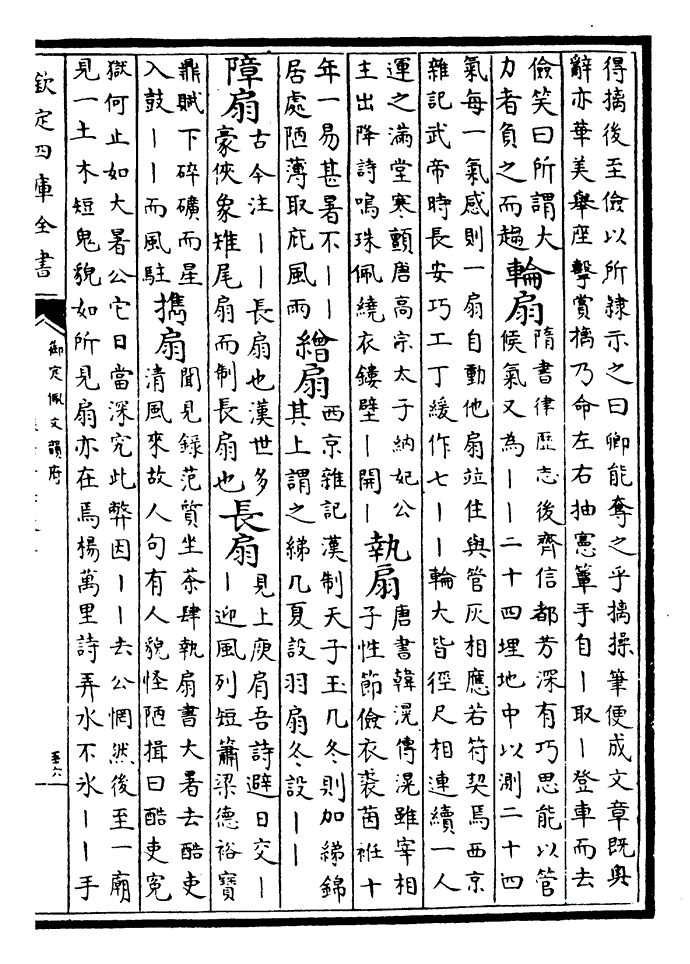 得摛後至儉以所隸示之曰卿能奪之乎摛操筆便成文章既奥
辭亦華美舉座擊賞摛乃命左右抽憲簟手自丨取丨登車而去
儉笑曰所謂大
力者負之而趨
輪扇
隋書律歴志後齊信都芳深有巧思能以管
候氣又為丨丨二十四埋地中以測二十四
氣每一氣感則一扇自動他扇竝住與管灰相應若符契焉西京
雜記武帝時長安巧工丁緩作七丨丨輪大皆徑尺相連續一人
運之滿堂寒顫唐高宗太子納妃公
主出降詩鳴珠佩繞衣鏤壁丨開丨
執扇
唐書韓滉傳滉雖宰相
子性節儉衣裘茵袵十
年一易甚暑不丨丨
居處陋薄取庇風雨
繒扇
西京雜記漢制天子玉几冬則加綈錦
其上謂之綈几夏設羽扇冬設丨丨
障扇
古今注丨丨長扇也漢世多
豪俠象雉尾扇而制長扇也
長扇
見上庾肩吾詩避日交丨
丨迎風列短簫梁德裕寶
鼎賦下碎礦而星
入鼓丨丨而風駐
携扇
聞見録范質坐茶肆執扇書大暑去酷吏
清風來故人句有人貌怪陋揖曰酷吏寃
獄何止如大暑公它日當深究此弊因丨丨去公惘然後至一廟
見一土木短鬼貌如所見扇亦在焉楊萬里詩弄水不氷丨丨手
欽定四庫全書
御定佩文韻府